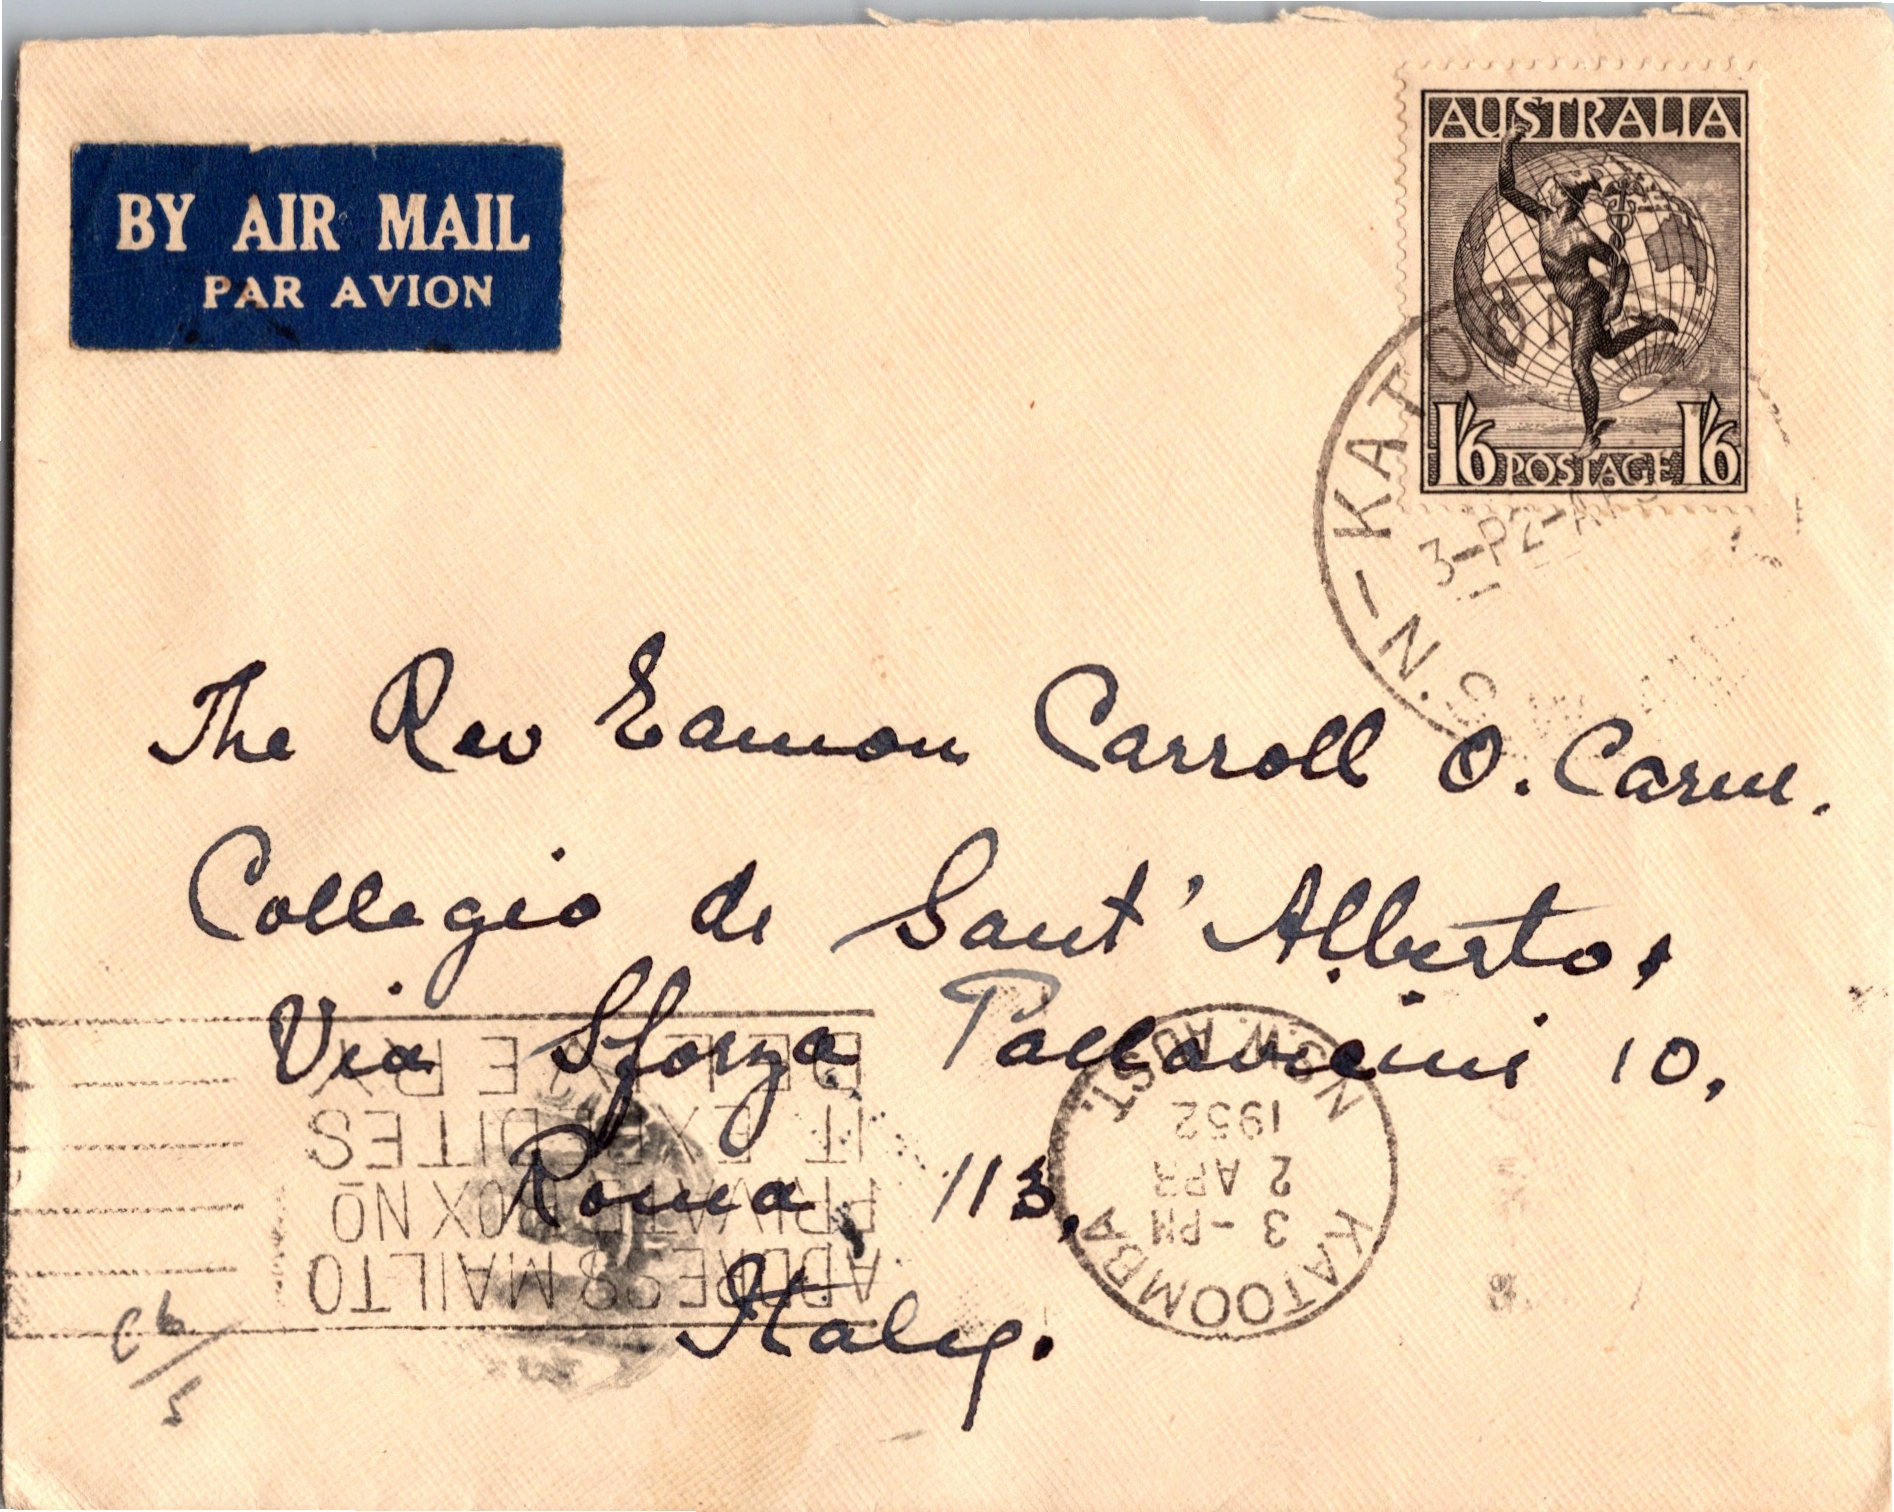 BY AIR MAIL
PAR AVION
AUSTRALIA
1/6 POSTAGE 1/6
KATOOMB
3-P2-AP
N.S
The Rev Eamon Carroll O. Carm.
Collegio di Sant' Alberto,
Via Sforza Pallavicini 10,
Roma, 113,
Italy.
KATOOMBA
3-PM
2 APR
1952
N.S.W. AUST.
ADDRESS MAIL TO
PRIVATE BOX NO
IT EXPEDITES
DELIVERY